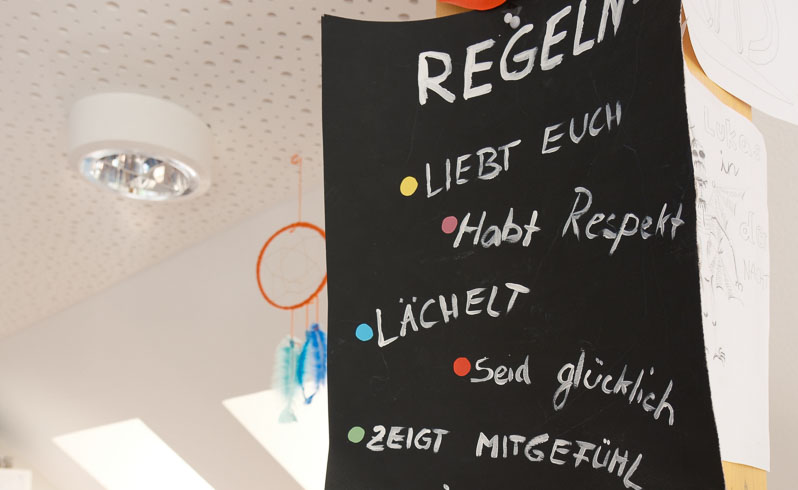 REGELN
LIEBT EUCH
Habt Respekt
LÄCHELT
Seid glücklich
ZEIGT MITGEFÜHL
Lukas
in
der